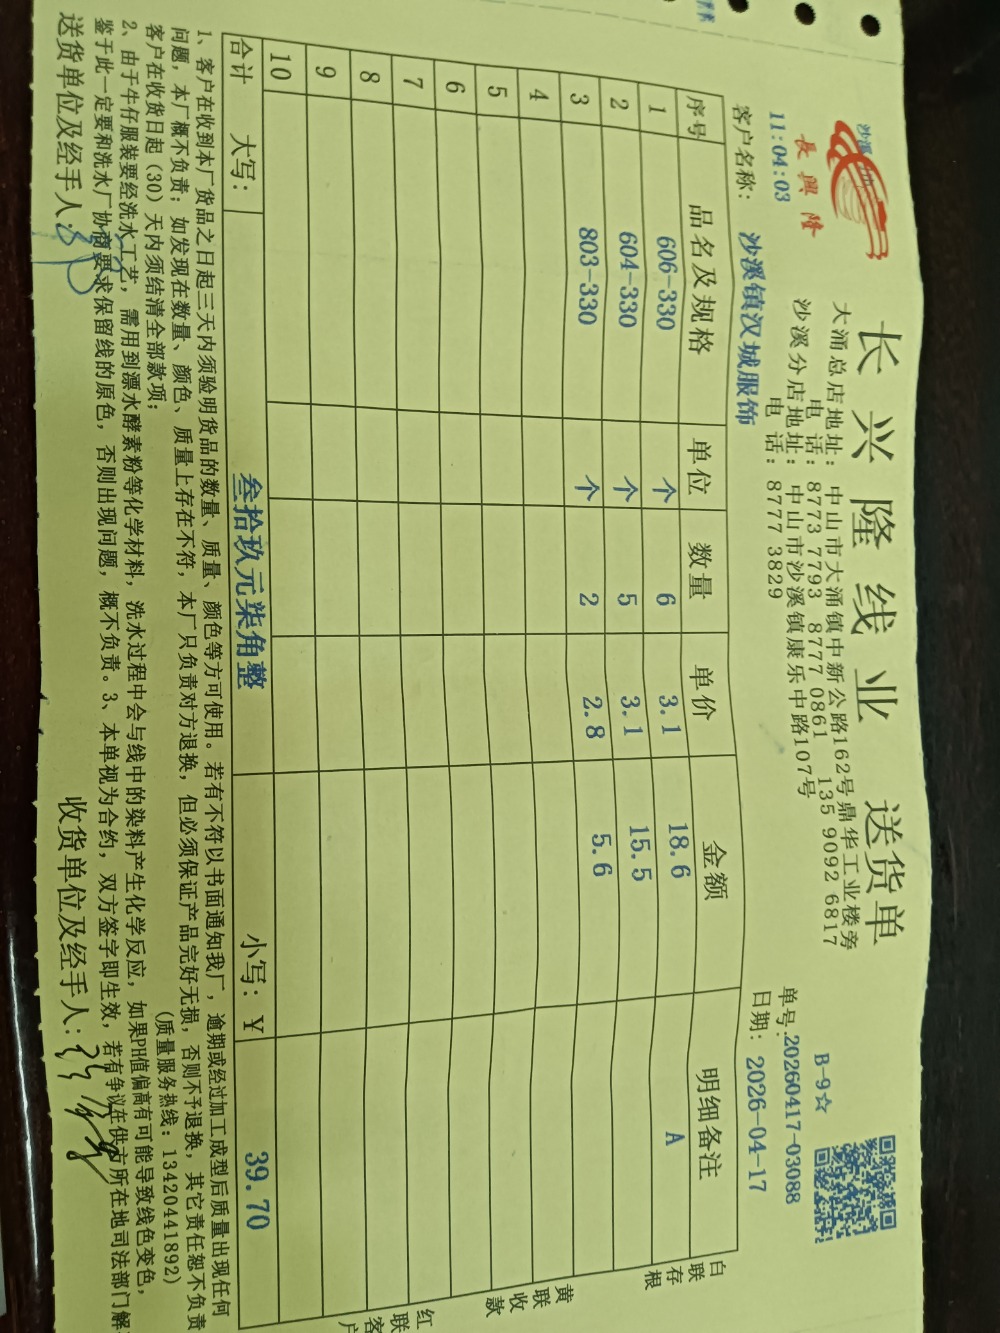 長興隆
长兴隆线业 送货单
大涌总店地址: 中山市大涌镇中新公路162号鼎华工业楼旁
电 话: 8773 7793 8777 0861 135 9092 6817
沙溪分店地址: 中山市沙溪镇康乐中路107号
电 话: 8777 3829
B-9☆
单号:20260417-03088
11:04:03
日期: 2026-04-17
客户名称: 沙溪镇汉城服饰
序号 品名及规格 单位 数量 单价 金额 明细备注
1 606-330 个 6 3.1 18.6 A
2 604-330 个 5 3.1 15.5
3 803-330 个 2 2.8 5.6
4
5
6
7
8
9
10
合计 大写: 叁拾玖元柒角整 小写: ¥ 39.70
白联存根
黄联收款
红联客户
1、客户在收到本厂货品之日起三天内须验明货品的数量、质量、颜色等方可使用。若有不符以书面通知我厂, 逾期或经过加工成型后质量出现任何
问题, 本厂概不负责; 如发现在数量、颜色、质量上存在不符, 本厂只负责对方退换, 但必须保证产品完好无损, 否则不予退换, 其它责任恕不负责
客户在收货日起 (30) 天内须结清全部款项; (质量服务热线: 13420441892)
2、由于牛仔服装要经洗水工艺, 需用到漂水酵素粉等化学材料, 洗水过程中会与线中的染料产生化学反应, 如果PH值偏高有可能导致线色变色,
鉴于此一定要和洗水厂协商要求保留线的原色, 否则出现问题, 概不负责。3、本单视为合约, 双方签字即生效, 若有争议在供方所在地司法部门解
送货单位及经手人: 收货单位及经手人: